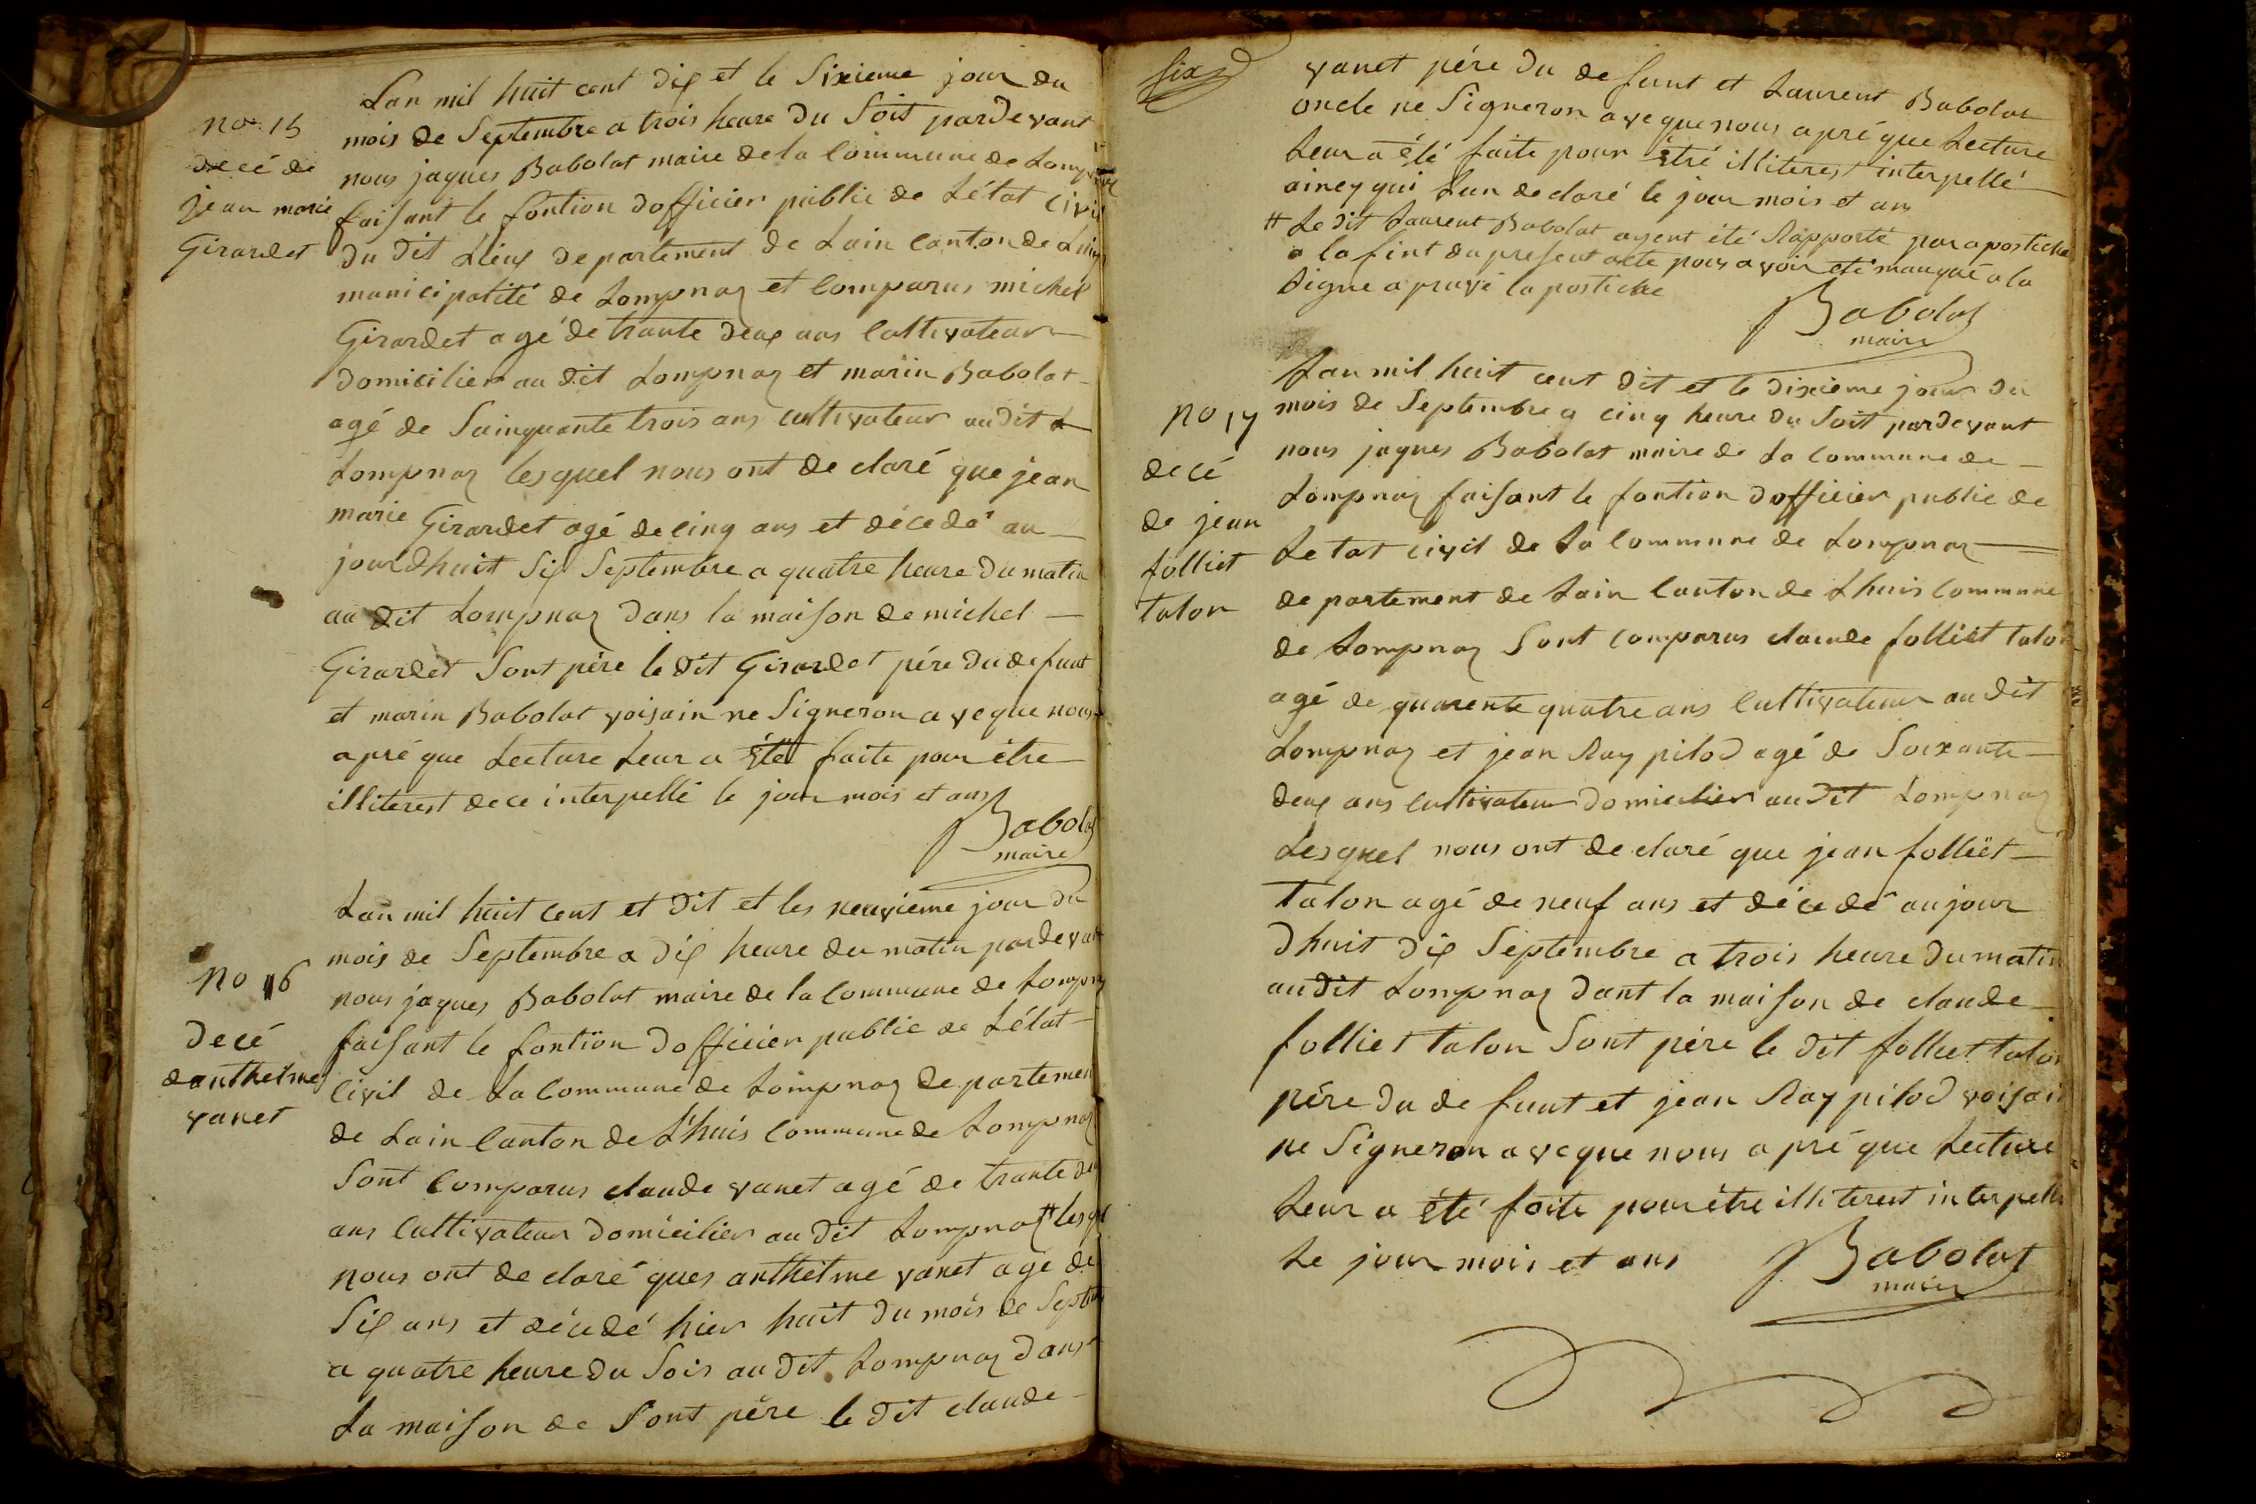 no. 15
decé de
jean marie
Girardet
Lan mil huit cent dix et le Sixieme jour du
mois de Septembre a trois heure du Soit pardevant
nous jaques Babolat maire dela Commune de
faisant le fontion dofficier public de Létat civil
du dit Lieux departement de Lain Canton de
municipatité de Lompnaz et Comparus michel
Girardet agé de trante deux ans Cultivateur
domicilier au dit Lompnaz et marin Babolat
agé de Sainquante trois ans cultivateur audit
Lompnaz lesquel nous ont de claré que jean
marie Girardet agé de cinq ans et décedé au
jourdhuit Six Septembre a quatre heure du matin
au dit Lompnaz dans la maison de michel
Girardet Sont père le dit Girardet pére du defunt
et marin Babolat voisain ne Signeron aveque nous
apré que Lecture Leur a été faite pour être
illiterest dece interpellé le jour mois et ans
Babolat
maire
no 16
Decé
danthelme
vanet
Lan mil huit cent et dit et les neuvième jour du
mois de Septembre a dix heure du matin pardevant
nous jaques Babolat maire de la Commune de
faisant le fontion dofficier public de Létat
Civil de La Commune de Lompnaz departement
de Lain Canton de Lhuis Commune de Lompnaz
Sont Comparus claude vanet agé de trante
ans Cultivateur domicilier au dit Lompnaz # lesquel
nous ont de claré ques anthelme vanet agé de
Six ans et décedé hier huit du mois de
a quatre heure du Soir au dit Lompnaz dans
La maison de Sont père le dit claude
Six
vanet pére du defunt et Laurent Babolat
oncle ne Signeron aveque nous apré que Lecture
Leur a été faite pour étré illiterest interpellé
aincy qui Lun declaré le jour mois et ans
# Le dit Laurent Babolat ayent été Rapporté par apostiche
a la fint du present acte pour avoir été manqué a la
Signe apruvé lapostiche
Babolat
maire
no 17
decé
de jean
folliet
talon
Lan mil huit cent dit et le dixieme jour du
mois de Septembre a cinq heure du Soit pardevant
nous jaques Babolat maire de La Commune de
Lompnaz faisant le fontion dofficier public de
Letat civil de La Commune de Lompnaz
departement de Lain Canton de Lhuis Commune
de Lompnaz Sont Comparus claude folliet talon
agé de quarente quatre ans Cultivateur au dit
Lompnaz et jean Ray pilod agé de Soixante
deux ans Cultivateur domicilier au dit Lompnaz
Lesquel nous ont de claré que jean folliet
talon agé de neuf ans et décedé aujour
dhuit dix Septembre a trois heure du matin
audit Lompnaz dant la maison de claude
folliet talon Sont père le dit folliet talon
pére du defunt et jean Ray pilod voisain
ne Signeron aveque nous apré que Lecture
Leur a été faite pour être illiterest interpellé
Le jour mois et ans
Babolat
maire